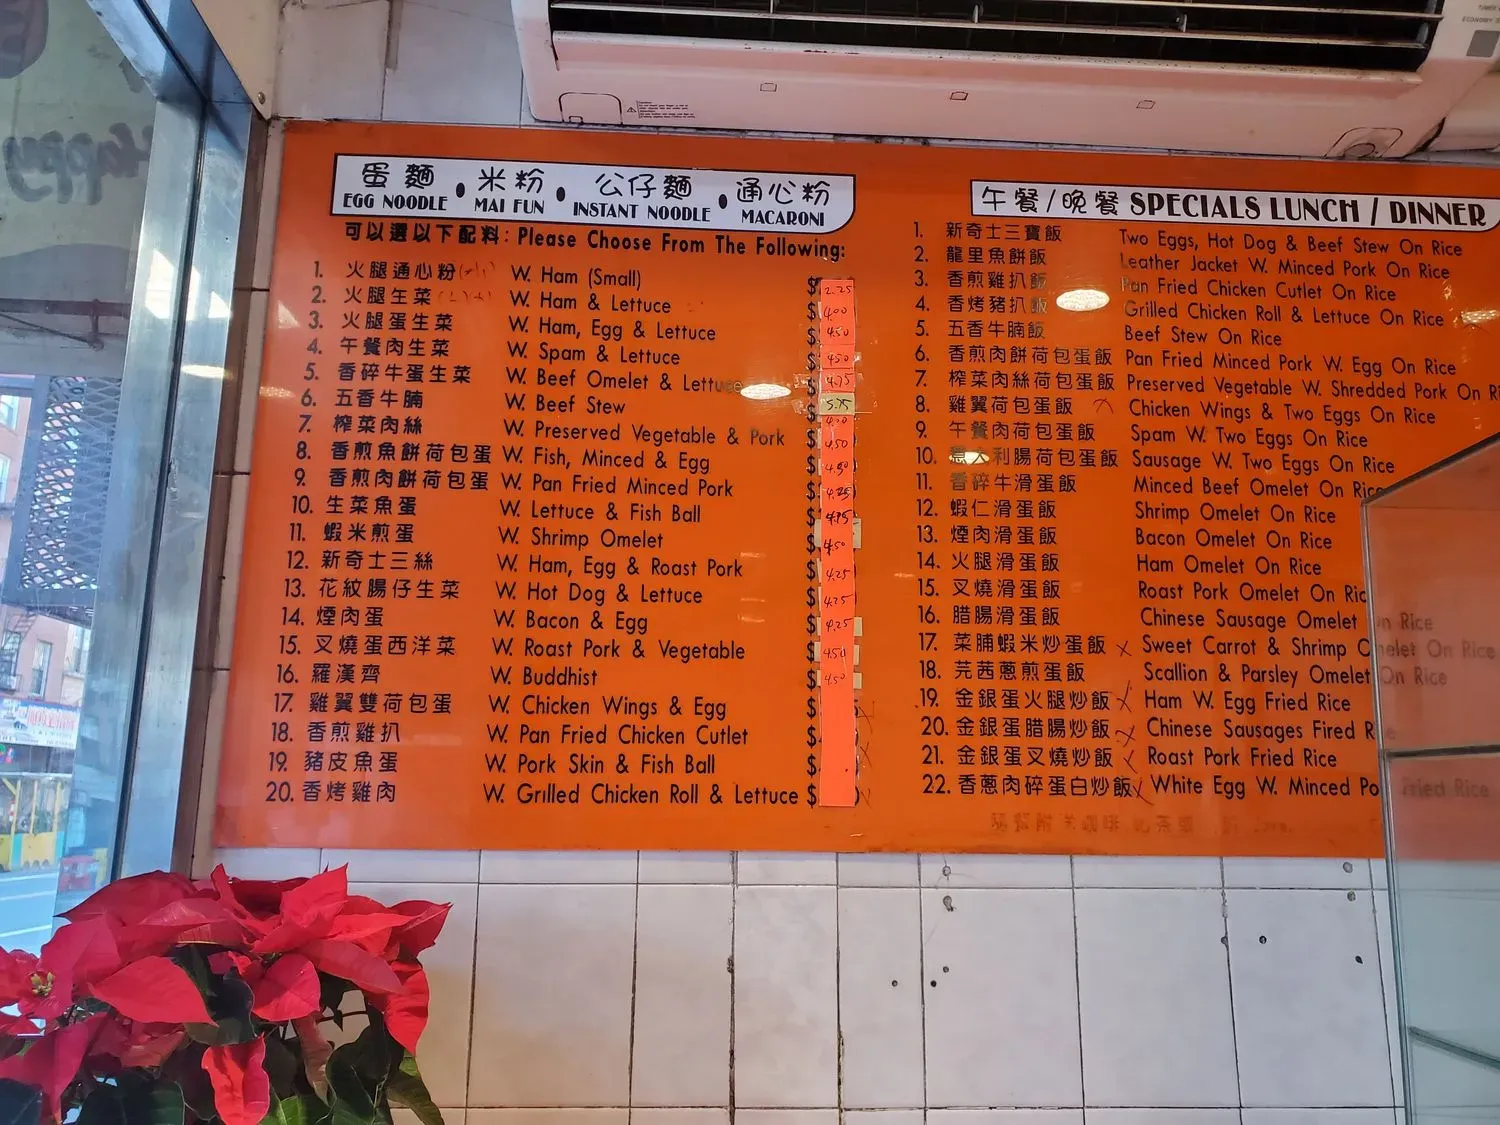 蛋麵 • 米粉 • 公仔麵 • 通心粉
EGG NOODLE MAI FUN INSTANT NOODLE MACARONI
可以選以下配料: Please Choose From The Following:
1. 火腿通心粉 W. Ham (Small) $2.25
2. 火腿生菜 W. Ham & Lettuce $4.00
3. 火腿蛋生菜 W. Ham, Egg & Lettuce $4.50
4. 午餐肉生菜 W. Spam & Lettuce $4.50
5. 香碎牛蛋生菜 W. Beef Omelet & Lettuce $4.75
6. 五香牛腩 W. Beef Stew $5.75
7. 榨菜肉絲 W. Preserved Vegetable & Pork $4.00
8. 香煎魚餅荷包蛋 W. Fish, Minced & Egg $4.50
9. 香煎肉餅荷包蛋 W. Pan Fried Minced Pork $
10. 生菜魚蛋 W. Lettuce & Fish Ball $4.25
11. 蝦米煎蛋 W. Shrimp Omelet $
12. 新奇士三絲 W. Ham, Egg & Roast Pork $4.50
13. 花紋腸仔生菜 W. Hot Dog & Lettuce $4.25
14. 煙肉蛋 W. Bacon & Egg $4.25
15. 叉燒蛋西洋菜 W. Roast Pork & Vegetable $4.25
16. 羅漢齊 W. Buddhist $4.50
17. 雞翼雙荷包蛋 W. Chicken Wings & Egg $4.50
18. 香煎雞扒 W. Pan Fried Chicken Cutlet $
19. 豬皮魚蛋 W. Pork Skin & Fish Ball $
20. 香烤雞肉 W. Grilled Chicken Roll & Lettuce $
午餐/晚餐 SPECIALS LUNCH / DINNER
1. 新奇士三寶飯 Two Eggs, Hot Dog & Beef Stew On Rice
2. 龍里魚餅飯 Leather Jacket W. Minced Pork On Rice
3. 香煎雞扒飯 Pan Fried Chicken Cutlet On Rice
4. 香烤豬扒飯 Grilled Chicken Roll & Lettuce On Rice
5. 五香牛腩飯 Beef Stew On Rice
6. 香煎肉餅荷包蛋飯 Pan Fried Minced Pork W. Egg On Rice
7. 榨菜肉絲荷包蛋飯 Preserved Vegetable W. Shredded Pork On Ri
8. 雞翼荷包蛋飯 Chicken Wings & Two Eggs On Rice
9. 午餐肉荷包蛋飯 Spam W. Two Eggs On Rice
10. 意大利腸荷包蛋飯 Sausage W. Two Eggs On Rice
11. 香碎牛滑蛋飯 Minced Beef Omelet On Rice
12. 蝦仁滑蛋飯 Shrimp Omelet On Rice
13. 煙肉滑蛋飯 Bacon Omelet On Rice
14. 火腿滑蛋飯 Ham Omelet On Rice
15. 叉燒滑蛋飯 Roast Pork Omelet On Ric
16. 腊腸滑蛋飯 Chinese Sausage Omelet on Rice
17. 菜脯蝦米炒蛋飯 Sweet Carrot & Shrimp Omelet On Rice
18. 芫茜蔥煎蛋飯 Scallion & Parsley Omelet On Rice
19. 金銀蛋火腿炒飯 Ham W. Egg Fried Rice
20. 金銀蛋腊腸炒飯 Chinese Sausages Fired R
21. 金銀蛋叉燒炒飯 Roast Pork Fried Rice
22. 香蔥肉碎蛋白炒飯 White Egg W. Minced Po Fried Rice
Happy